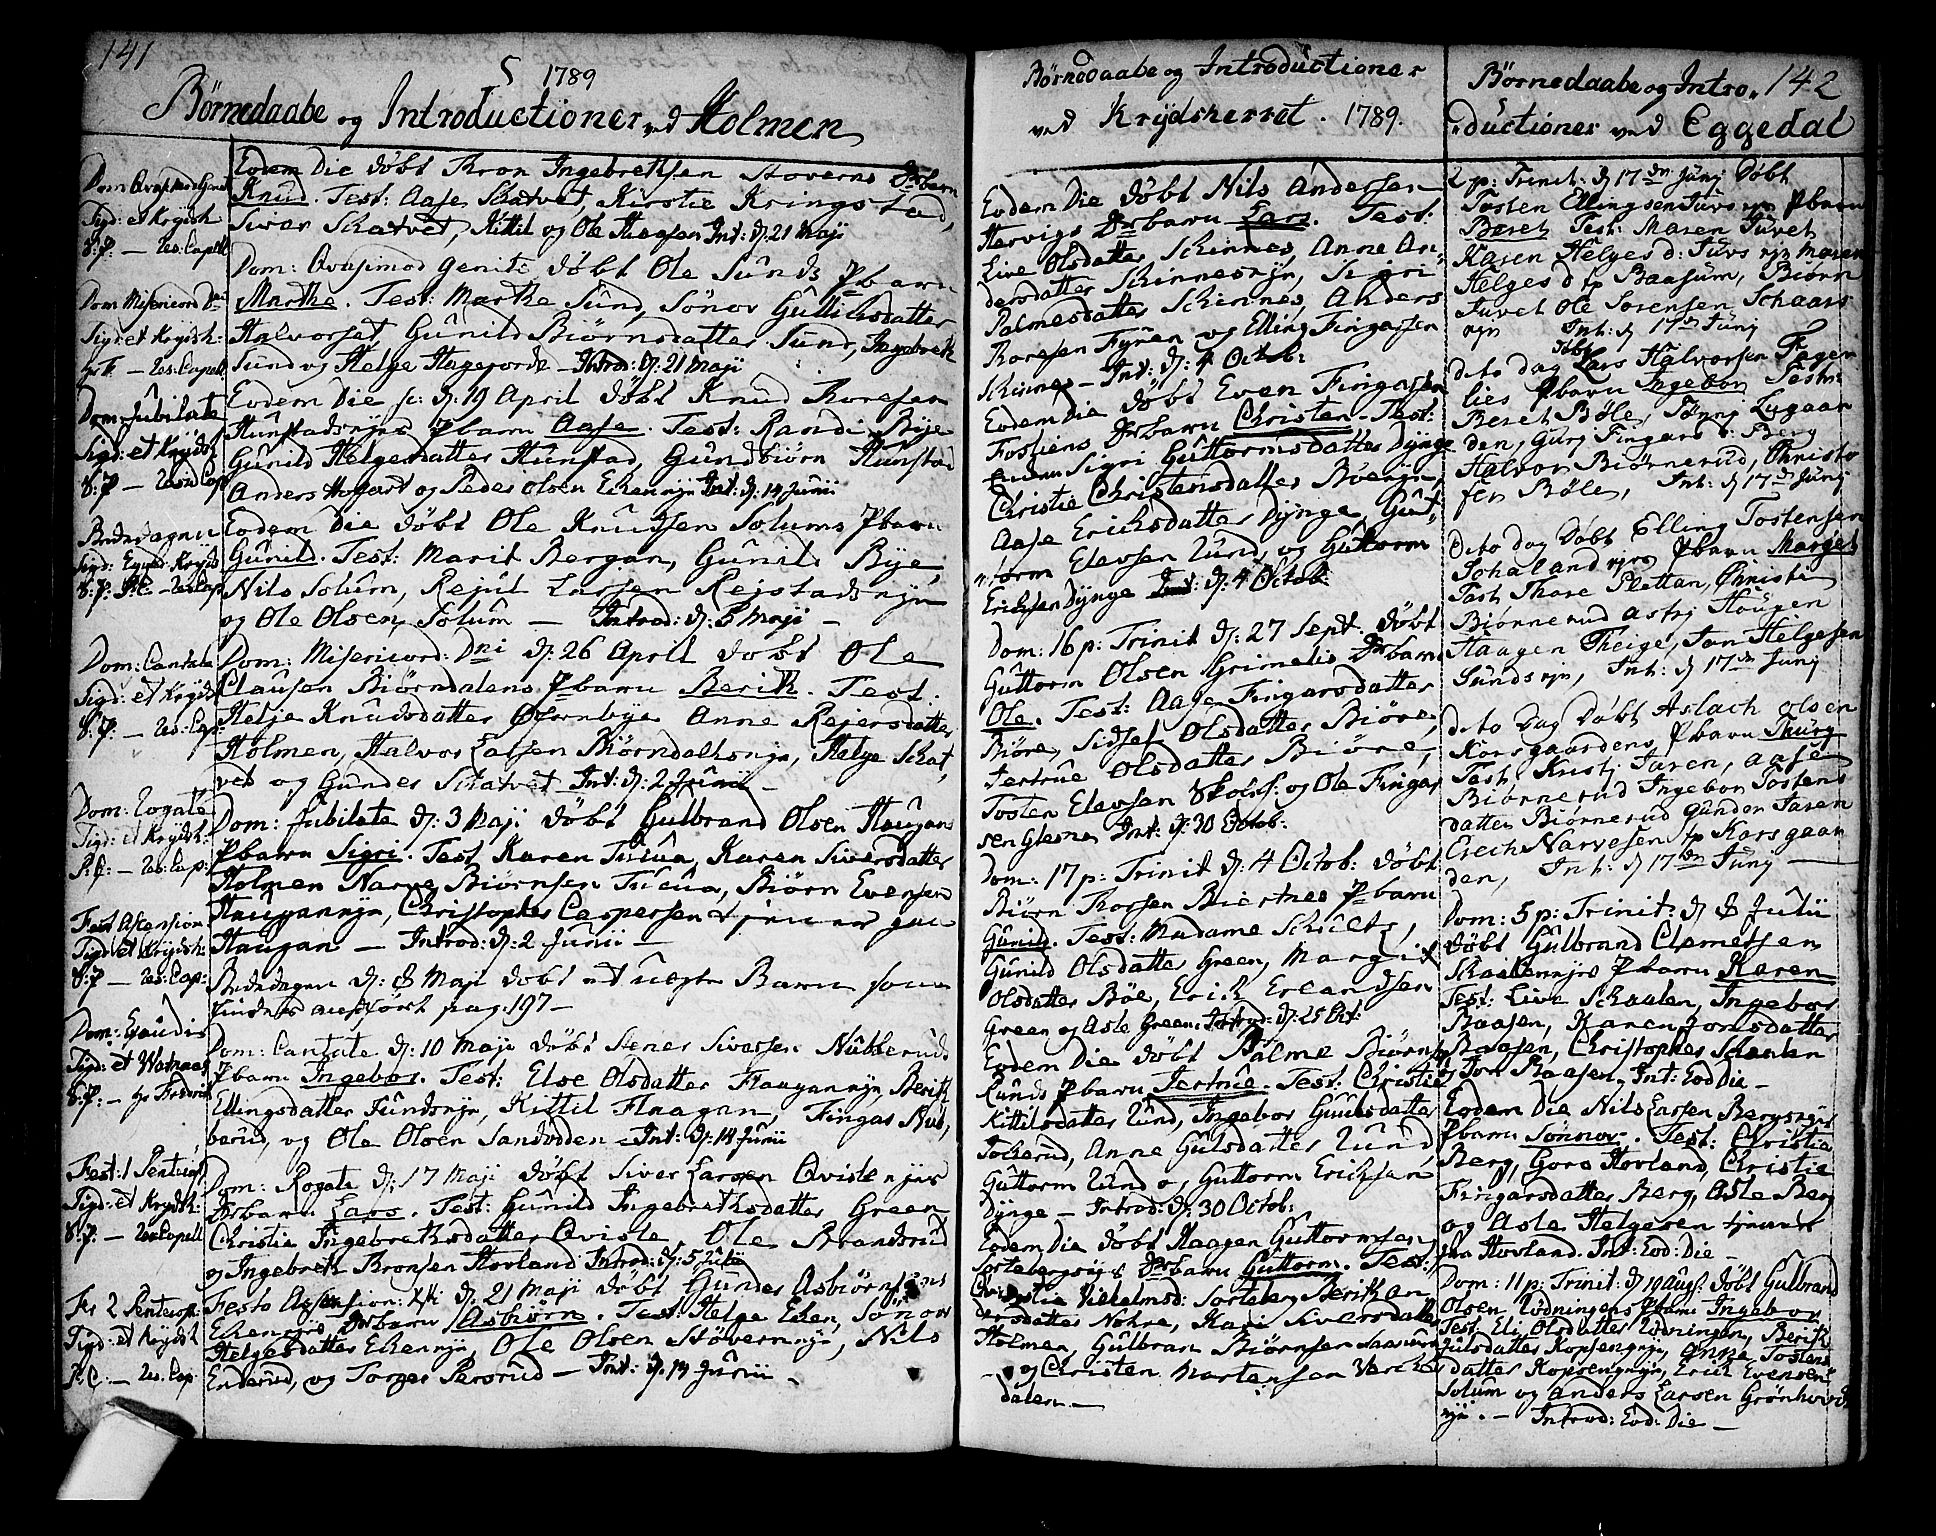 141
1789
Børnedaabe og Introductioner ved Holmen
Dom: Qvasimod Genit
Sigd: et Krydsh
S: P: — Res: Capell
Dom Misericord Dni
Sigd: et Krydsh:
— Res: Capell
Dom: Jubilate
Sigd: et Krydsh
S: P: — Resd Cap
Bededagen
Sigd: Egged: Krydsh
S: P: P: C: — Res Cap
Dom: Cantate
Sigd: et Krydsh
S: P: — Res: Cap:
Dom: Rogate
Sigd: et Krydsh:
P: C: — Res: Cap:
Fest Ascension
Sigd: et Krydsh:
S: P — Res: Cap:
Dom: Exaudi
Sigd: et
S: P: — hr Fredrich
Fest: 1 Pentecost
Sigd: et Krydsh:
S: P: — Res: Capell
Fer 2 Pentecost
Sigd: et Krydsh
P: C: — Res: Cap
Eodem Die døbt Thron Ingebretsen Stoverns Drbarn
Knud. Test: Aase Skatvet, Kirstie Kringstad,
Siver Skatvet, Kittil og Ole Haasen Int: d: 21 Maji
Dom: Qvasimod Geniti døbt Ole Sunds Pbarn
Marthe. Test: Marthe Sund, Sønov Gullichsdatter
Halvorset, Gunild Biørnsdatter Sund, Ingebreth
Sund og Helge Hagejorde — Introd: d: 21 Maji
Eodem Die sc: d: 19 April døbt Knud Thoresen
Hunstadsnyes Pbarn Aase. Test: Randi Bye
Gunild Helgesdatter Hunstad, Gundbiørn Hunstad
Anders Hogart og Peder Olsen Ekernyn Int: d: 14 Junii
Eodem Die døbt Ole Knudsen Solums Pbarn
Gunild. Test: Marit Bergan, Gunild Bye,
Nils Solum, Rejul Larsen Rejstadsnyn
og Ole Olsen Solum — Introd: d: 5 Maji —
Dom: Misericord: Dni d: 26 April døbt Ole
Clausen Biørndalens Pbarn Berith. Test.
Helje Knudsdatter Ofsernbye Anne Rejersdatter
Holmen, Halvor Larsen Biørndalhsnye, Helge Skat,
vet og Gunder Skatvet Int: d: 2 Junii —
Dom: Jubilate d: 3 Maji døbt Gulbrand Olsen Haugans
Pbarn Sigri. Test Karen Tucua, Karen Siversdatter
Holmen Narve Biørnsen Tucua, Biørn Evensen
Haugannye, Christopher Caspersen tjener paa
Haugan — Introd: d: 2 Junii —
Bededagen d: 8 Maji døbt et uegte Barn som
findes anført pag: 197 —
Dom: Cantate d: 10 Maji døbt Stener Siversen Nubberuds
Pbarn Ingebor. Test: Else Olsdatter Flaugannyn, Berith
Ellingsdatter Sundsnyn, Kittil Flaagan, Fingas Nub,
berud, og Ole Olsen Sandviden — Int: d: 14 Junii
Dom: Rogate d: 17 Maji døbt Siver Larsen Qvistenyes
Drbarn Lars. Test: Gunild Ingebrethsdatter Green
Christie Ingebrethsdatter Qviste, Ole Brandsrud
og Ingebreth Bronsen Hovland Introd: d: 5 Julii
Festo Ascension: Xsti d: 21 Maji døbt Gunder Asbiørnsens
Ekernyes Drbarn Asbiørn. Test: Helge Eken, Sønov
Helgesdatter Ekernyn, Ole Olsen Støvernnye, Nils
Enderud, og Torger Persrud — Int: d: 14 Junii —
Børnedaabe og Introductioner
ved Krydsherret. 1789.
Eodem Die døbt Nils Andersen
Hervigs Drbarn Lars. Test:
Live Olsdatter Skinnes, Anne An-
dersdatter Skinnesnyn, Sigri
Palmesdatter Skinnes, Anders
Thoresen Fyren og Elling Fingarsen
Skinnes — Int: d: 4 Octob:
Eodem Die døbt Even Fingarsen
Fostiens Drbarn Christen. Test:
Sigri Guttormsdatter Dynge
Christie Christensdatter Bøernyn,
Aase Erichsdatter Dynge, Gut,
torm Elevsen Lund, og Guttorm
Erichsen Dynge Int: d: 4 Octob:
Dom: 16 p: Trinit d: 27 Sept. døbt
Guttorm Olsen Grimelis Drbarn
Ole. Test: Aase Fingarsdatter
Biøre, Sidsel Olsdatter Biøre,
Jertrue Olsdatter Biøre,
Tosten Elevsen Skolh: og Ole Fingar
sen Glesne Int: d: 30 Octob:
Dom: 17 p: Trinit d: 4 Octob: døbt
Biørn Thorsen Biertnes Pbarn
Gunild. Test: Madame Schultz,
Gunild Olsdatter Green, Margit
Olsdatter Bøe, Erich Erlandsen
Green og Asle Green. Introd: d: 25 Oct:
Eodem Die døbt Palme Biørns
Lunds Pbarn Jertrue. Test: Christie
Kittilsdatter Lund, Ingebor Guulsdatter
Tokerud, Anne Gulsdatter Lund
Guttorm Lund o, Guttorm Erichsen
Dynge — Introd: d: 30 Octob:
Eodem Die døbt Haagen Guttormsen
Sortebergsnyes Drbarn Guttorm. Test:
Christie Vilhelmsd: Sorteber, Berith An
dersdatter Nohre, Kari Siversdatter
Holmen, Gulbran Biørnsen Saasund
og Christen Mortensen Vercke
dalen —
Børnedaabe og Intro- 142
ductioner ved Eggedal
2 p: Trinit: d 17de Junij Døbt
Tosten Ellingsen Juvs nyn Pbarn
Bereth Test: Maren Juvet
Karen Helges d: Juvs nyn Maren
Helges d fp Baasum, Biørn
Juvet Ole Sørensen Schaars
nyn Int: d 17de Junij
dito dag Døbt Lars Halvorsen Fagen
lies Pbarn Ingebor Test:
Beret Bøle, Tønni Lugaar
den, Gurj Fingars d: Berg
Halvor Biørnerud, Christo
fer Bøle, Int: d 17de Junij
dito dag Døbt Elling Tostensen
Schalandnyes Pbarn Marget
Test Thore Plettan, Christi
Biørnerud Astrj Haugen
Haagen Theige, Jon Helgesen
Sundsnyn, Int: d 17de Junij
dito Dag Døbt Aslach Olsen
Korsgaardens Pbarn Thurg
Test Kristj Jaren, Aase
Biørnerud Ingebor Tostens
datter Biørnerud Gunder Jaren
Erich Narvesen fp Korsgaar
den, Int: d 17de Junij —
Dom: 5 p: Trinit: d 8 Julii
døbt Gulbrand Clemetsen
Skalennyes Pbarn Karen
Test: Live Skaalen, Ingebor
Baasen, Karen Jonsdatter
Baasen, Christopher Skaalen
og Jon Baasen, Int: Eod Die —
Eodem Die Nils Larsen Bergsnyes
Pbarn Sønnov. Test: Christie
Berg, Goro Hovland, Christie
Fingarsdatter Berg, Asle Berg
og Asle Helgesen tjener
paa Hovland. Int: Eod: Die —
Dom: 11 p: Trinit: d 19 Aug: døbt Gulbrand
Olsen Lødningens Pbarn Ingebor
Test: Eli Olsdatter Lødningen, Berith
Julsdatter Kopsengnyn, Anne Tostens
datter Kopsengnyn, Erich Evensen
Solum og Anders Larsen Grønhovd
nye. — Introd: Eod: Die —